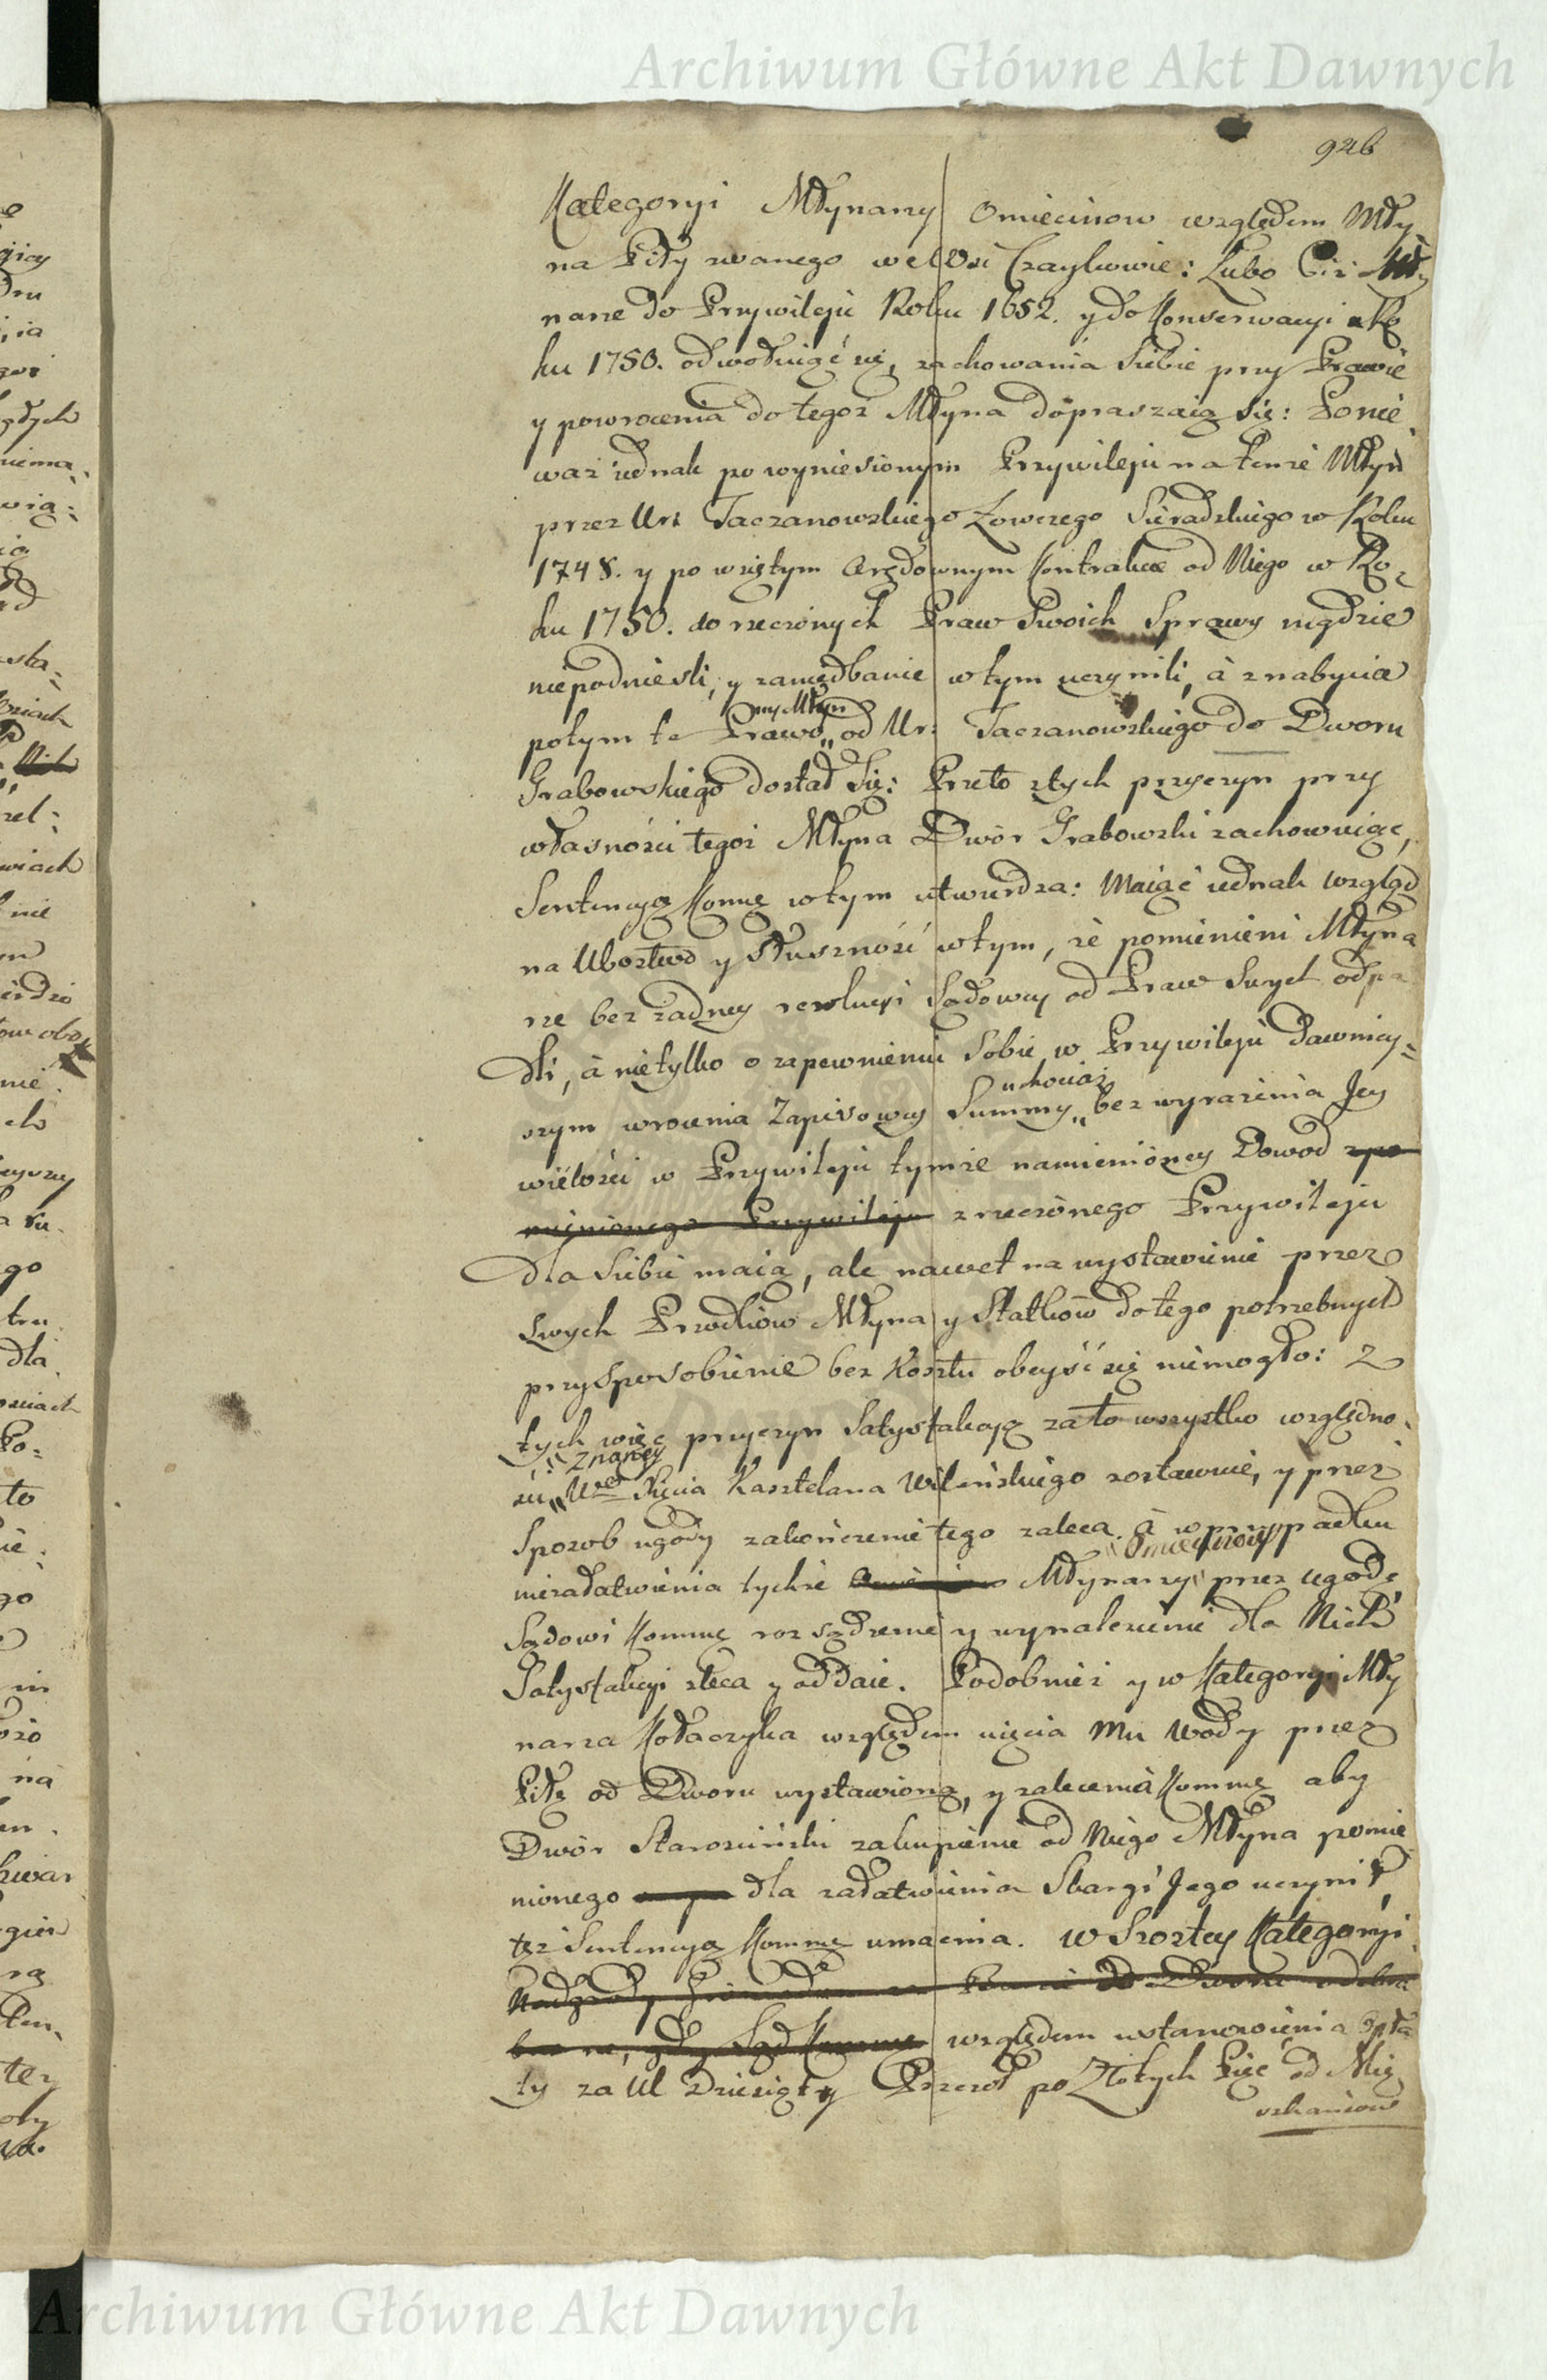 Archiwum Główne Akt Dawnych
926
Kategoryi Młynarzy Omiecinow względem Mły-
na Piły zwanego we Wsi Czaykowie: Lubo Ciż Mły
narze do Przywileju Roku 1652. y do Konserwacyi z Ro
ku 1750. odwołuiąć się, zachowania Siebie przy Prawie
y powrocenia do tegoż Młyna dopraszaią się: Ponie-
waż iednak po wyniesionym Przywileju na tenże Młyn
przez Ur: Taczanowskiego Łowczego Sieradzkiego w Roku
1748. y po wziętym Arędownym Kontrakcie od Niego w Ro-
ku 1750. do rzeczonych Praw Swoich Sprawy nigdzie
niepodniesli, y zaniedbanie w tym uczynili, à z nabycia
ny Młyn
potym te Prawo „ od Ur: Taczanowskiego do Dworu
Grabowskiego dostał Się: Przeto z tych przyczyn przy
własności tegoż Młyna Dwór Grabowski zachowuiąc,
Sentencyą Kommę w tym utwierdza: Maiąć iednak wzgląd
na Ubostwo y słuszność w tym, że pomienieni Młyna
rze bez żadney rezolucyi Sądowey od Praw Swych odpa
dli, à nietylko o zapewnieniu Sobie w Przywileju dawniey-
uchociaż
szym wrocenia Zapisowey Summy „ bez wyrażenia Jey
wielości w Przywileju tymże namienioney Dowod
z rzeczonego Przywileju
dla Siebie maią, ale nawet na wystawienie przez
Swych Przodków Młyna y Statków do tego potrzebnych
przysposobienie bez Kosztu obeyść się niemogło: Z
tych więc przyczyn Satysfakcyą za to wszystko względno-
znaney
ści „ Xcia Kasztelana Wileńskiego zostawuie, y przez
Sposob ugody zakończenie tego zaleca. à w przyppadku
Omięcinow
niezałatwienia tychże Młynarzy przez ugodę
Sądowi Kommę rozsądzenie y wynalezienie dla Nich
Satysfakcyi zleca y oddaie. Podobnież y w Kategoryi Mły
narza Kołaczyka względem uięcia Mu Wody przez
Piłę od Dworu wystawioną, y zalecenia Kommę aby
Dwór Starościński zakupienie od Niego Młyna pomie
nionego dla załatwienia Skargi Jego uczynił,
też Sentencyą Kommę umacnia. W Szostey Kategoryi
względem ustanowienia opła
ty za Ul Dziesiąty Pszczoł po Złotych Pięć od Mie
szkańców
Archiwum Główne Akt Dawnych